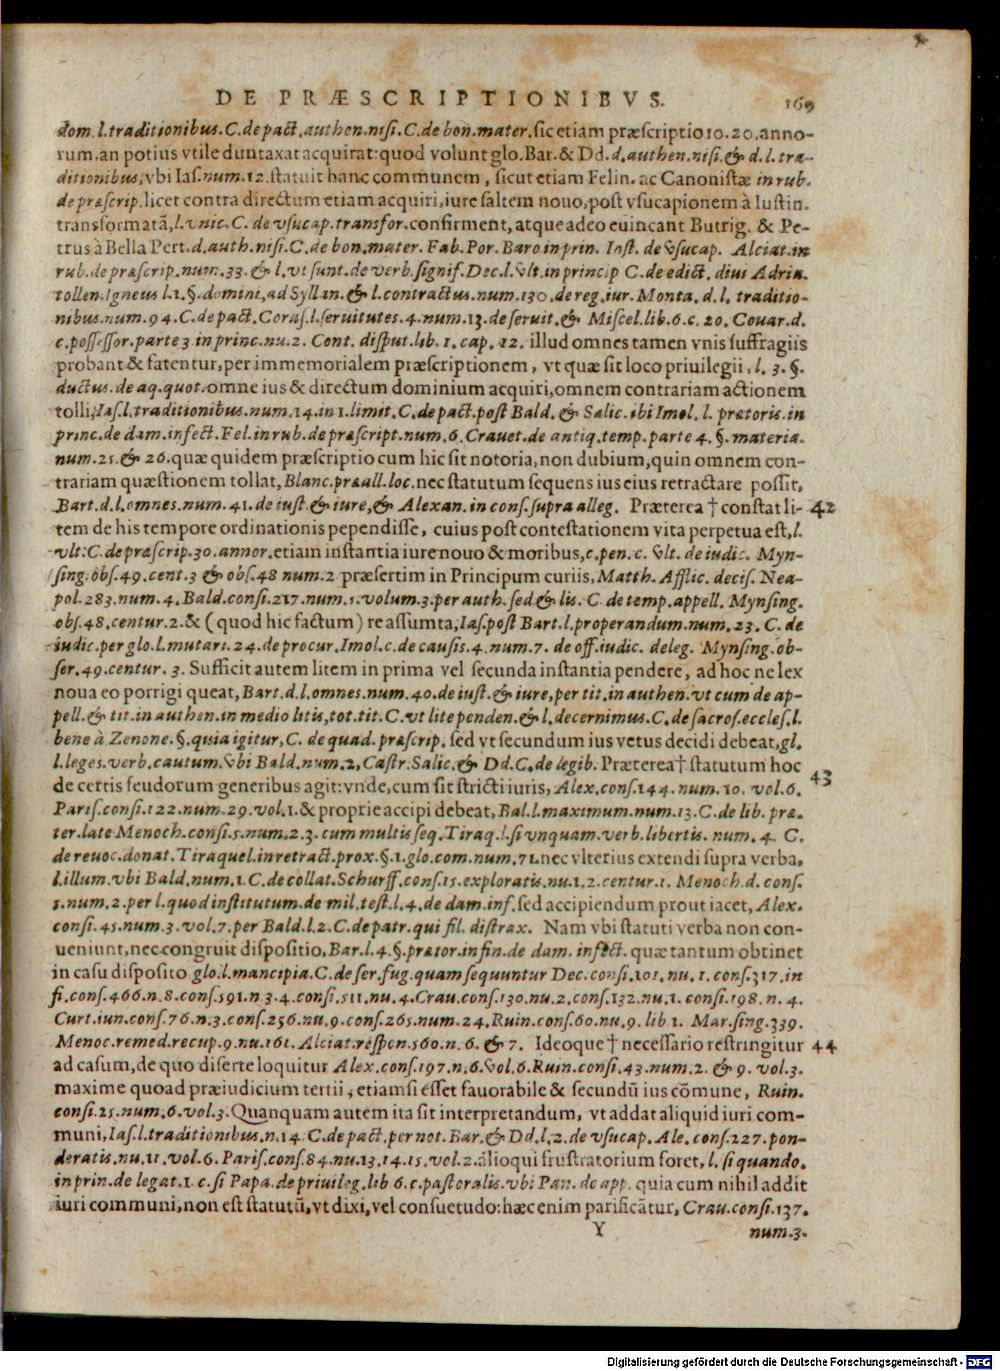 DE PRÆSCRIPTIONIBVS. 169
dom.l.traditionibus.C.de pact.authen.nisi.C.de bon.mater.sic etiam præscriptio 10.20.anno-
rum.an potius vtile duntaxat acquirat:quod volunt glo.Bar.& Dd.d.authen.nisi.& d.l.tra-
ditionibus,vbi Ias.num.12.statuit hanc communem, sicut etiam Felin. ac Canonistæ in rub.
de præscrip.licet contra directum etiam acquiri,iure saltem nouo,post vsucapionem à Iustin.
transformatã,l.vnic.C. de vsucap.transfor.confirment, atque adeo euincant Butrig. & Pe-
trus à Bella Pert.d.auth.nisi.C.de bon.mater. Fab. Por. Baro in prin. Inst. de vsucap. Alciat.in
rub.de præscrip.num.33. & l.vt sunt.de verb.signif.Dec.l.vlt.in princip C.de edict. diui Adria.
tollen.Igneus l.1.§.domini,ad Syllan.& l.contractus.num.130.de reg.iur. Monta.d.l. traditio-
nibus.num.94.C.de pact.Coras.l.seruitutes.4.num.13.de seruit.& Miscel.lib.6.c.20. Couar.d.
c.possessor.parte 3 in princ.nu.2. Cont. disput.lib. 1. cap. 12. illud omnes tamen vnis suffragiis
probant & fatentur,per immemorialem præscriptionem, vt quæ sit loco priuilegii, l. 3. §.
ductus.de aq.quot.omne ius & directum dominium acquiri,omnem contrariam actionem
tolli,Ias.l.traditionibus.num.14.in 1.limit.C.de pact.post Bald. & Salic.ibi Imol. l. prætoris.in
princ.de dam.infect.Fel.in rub.de præscript.num.6.Crauet.de antiq.temp.parte 4. §. materia.
num.25.& 26.quæ quidem præscriptio cum hic sit notoria,non dubium,quin omnem con-
trariam quæstionem tollat,Blanc.præall.loc.nec statutum sequens ius eius retractare possit,
Bart.d.l.omnes.num.41.de iust.& iure,& Alexan.in cons.supra alleg. Præterea † constat li- 42
tem de his tempore ordinationis pependisse, cuius post contestationem vita perpetua est,l.
vlt:C.de præscrip.30.annor.etiam instantia iure nouo & moribus,c.pen.c. vlt.de iudic. Myn-
sing.obs.49.cent.3 & obs.48 num.2 præsertim in Principum curiis,Matth. Afflic. decis. Nea-
pol.283.num.4.Bald.consi.217.num.1.volum.3.per auth.sed & lis. C de temp.appell. Mynsing.
obs.48.centur.2.&(quod hic factum) reassumta,Ias.post Bart.l.properandum.num. 23. C. de
iudic.per glo.l.mutari.24.de procur.Imol.c.de causis.4.num.7. de off.iudic. deleg. Mynsing.ob-
ser.49.centur. 3. Sufficit autem litem in prima vel secunda instantia pendere, ad hoc ne lex
noua eo porrigi queat,Bart.d.l.omnes.num.40.de iust.& iure,per tit.in authen.vt cum de ap-
pell.& tit.in authen.in medio litis,tot.tit.C.vt lite penden.& l.decernimus.C.de sacros.eccles.l.
bene à Zenone.§.quia igitur,C. de quad.præscrip. sed vt secundum ius vetus decidi debeat,gl.
l.leges.verb.cautum.vbi Bald.num.2,Castr.Salic.& Dd.C.de legib. Præterea † statutum hoc 43
de certis feudorum generibus agit:vnde,cum sit stricti iuris, Alex.cons.144.num.10. vol.6.
Paris.consi.122.num.29.vol.1.& proprie accipi debeat,Bal.l.maximum.num.13.C.de lib.præ-
ter.late Menoch.consi.5.num.2.3. cum multis seq.Tiraq.l.si vnquam.verb.libertis. num. 4. C.
de reuoc.donat.Tiraquel.in retract.prox.§.1.glo.com.num.71.nec vlterius extendi supra verba,
l.illum.vbi Bald.num.1.C.de collat.Schurff.cons.15.exploratis.nu.1.2.centur.1. Menoch.d. cons.
5.num.2.per l.quod institutum.de mil.test.l.4.de dam.inf.sed accipiendum prout iacet, Alex.
consi.45.num.3.vol.7.per Bald.l.2.C.de patr.qui fil. distrax. Nam vbi statuti verba non con-
ueniunt,nec congruit dispositio,Bar.l.4.§.prætor.in fin.de dam. infect. quæ tantum obtinet
in casu disposito glo.l.mancipia.C.de ser.fug.quam sequuntur Dec.consi.101.nu.1.cons.317.in
fi.cons.466.n.8.cons.591.n 3.4.consi.511.nu.4.Crau.cons.130.nu.2.cons.132.nu.1. consi.198. n. 4.
Curt.iun.cons.76.n.3.cons.256.nu.9.cons.265.num.24.Ruin.cons.60.nu.9.lib 1. Mar.sing.339.
Menoc.remed.recup.9.nu.161. Alciat.respon.560.n.6. & 7. Ideoque † necessario restringitur 44
ad casum,de quo diserte loquitur Alex.cons.197.n.6.vol.6.Ruin.consi.43.num.2. & 9. vol.3.
maxime quoad præiudicium tertii, etiamsi esset fauorabile & secundũ ius cõmune, Ruin.
consi.25.num.6.vol.3.Quanquam autem ita sit interpretandum, vt addat aliquid iuri com-
muni,Ias.l.traditionibus.n.14.C.de pact.per not.Bar.& Dd.l.2.de vsucap.Ale.cons.227.pon-
deratis.nu.11.vol.6.Paris.cons.84.nu.13.14.15.vol.2.alioqui frustratorium foret,l. si quando.
in prin.de legat.1.c.si Papa.de priuileg.lib 6.c.pastoralis.vbi Pan.de app. quia cum nihil addit
iuri communi,non est statutũ,vt dixi,vel consuetudo:hæc enim parificãtur, Crau.consi.137.
Y num.3.
Digitalisierung gefördert durch die Deutsche Forschungsgemeinschaft - DFG